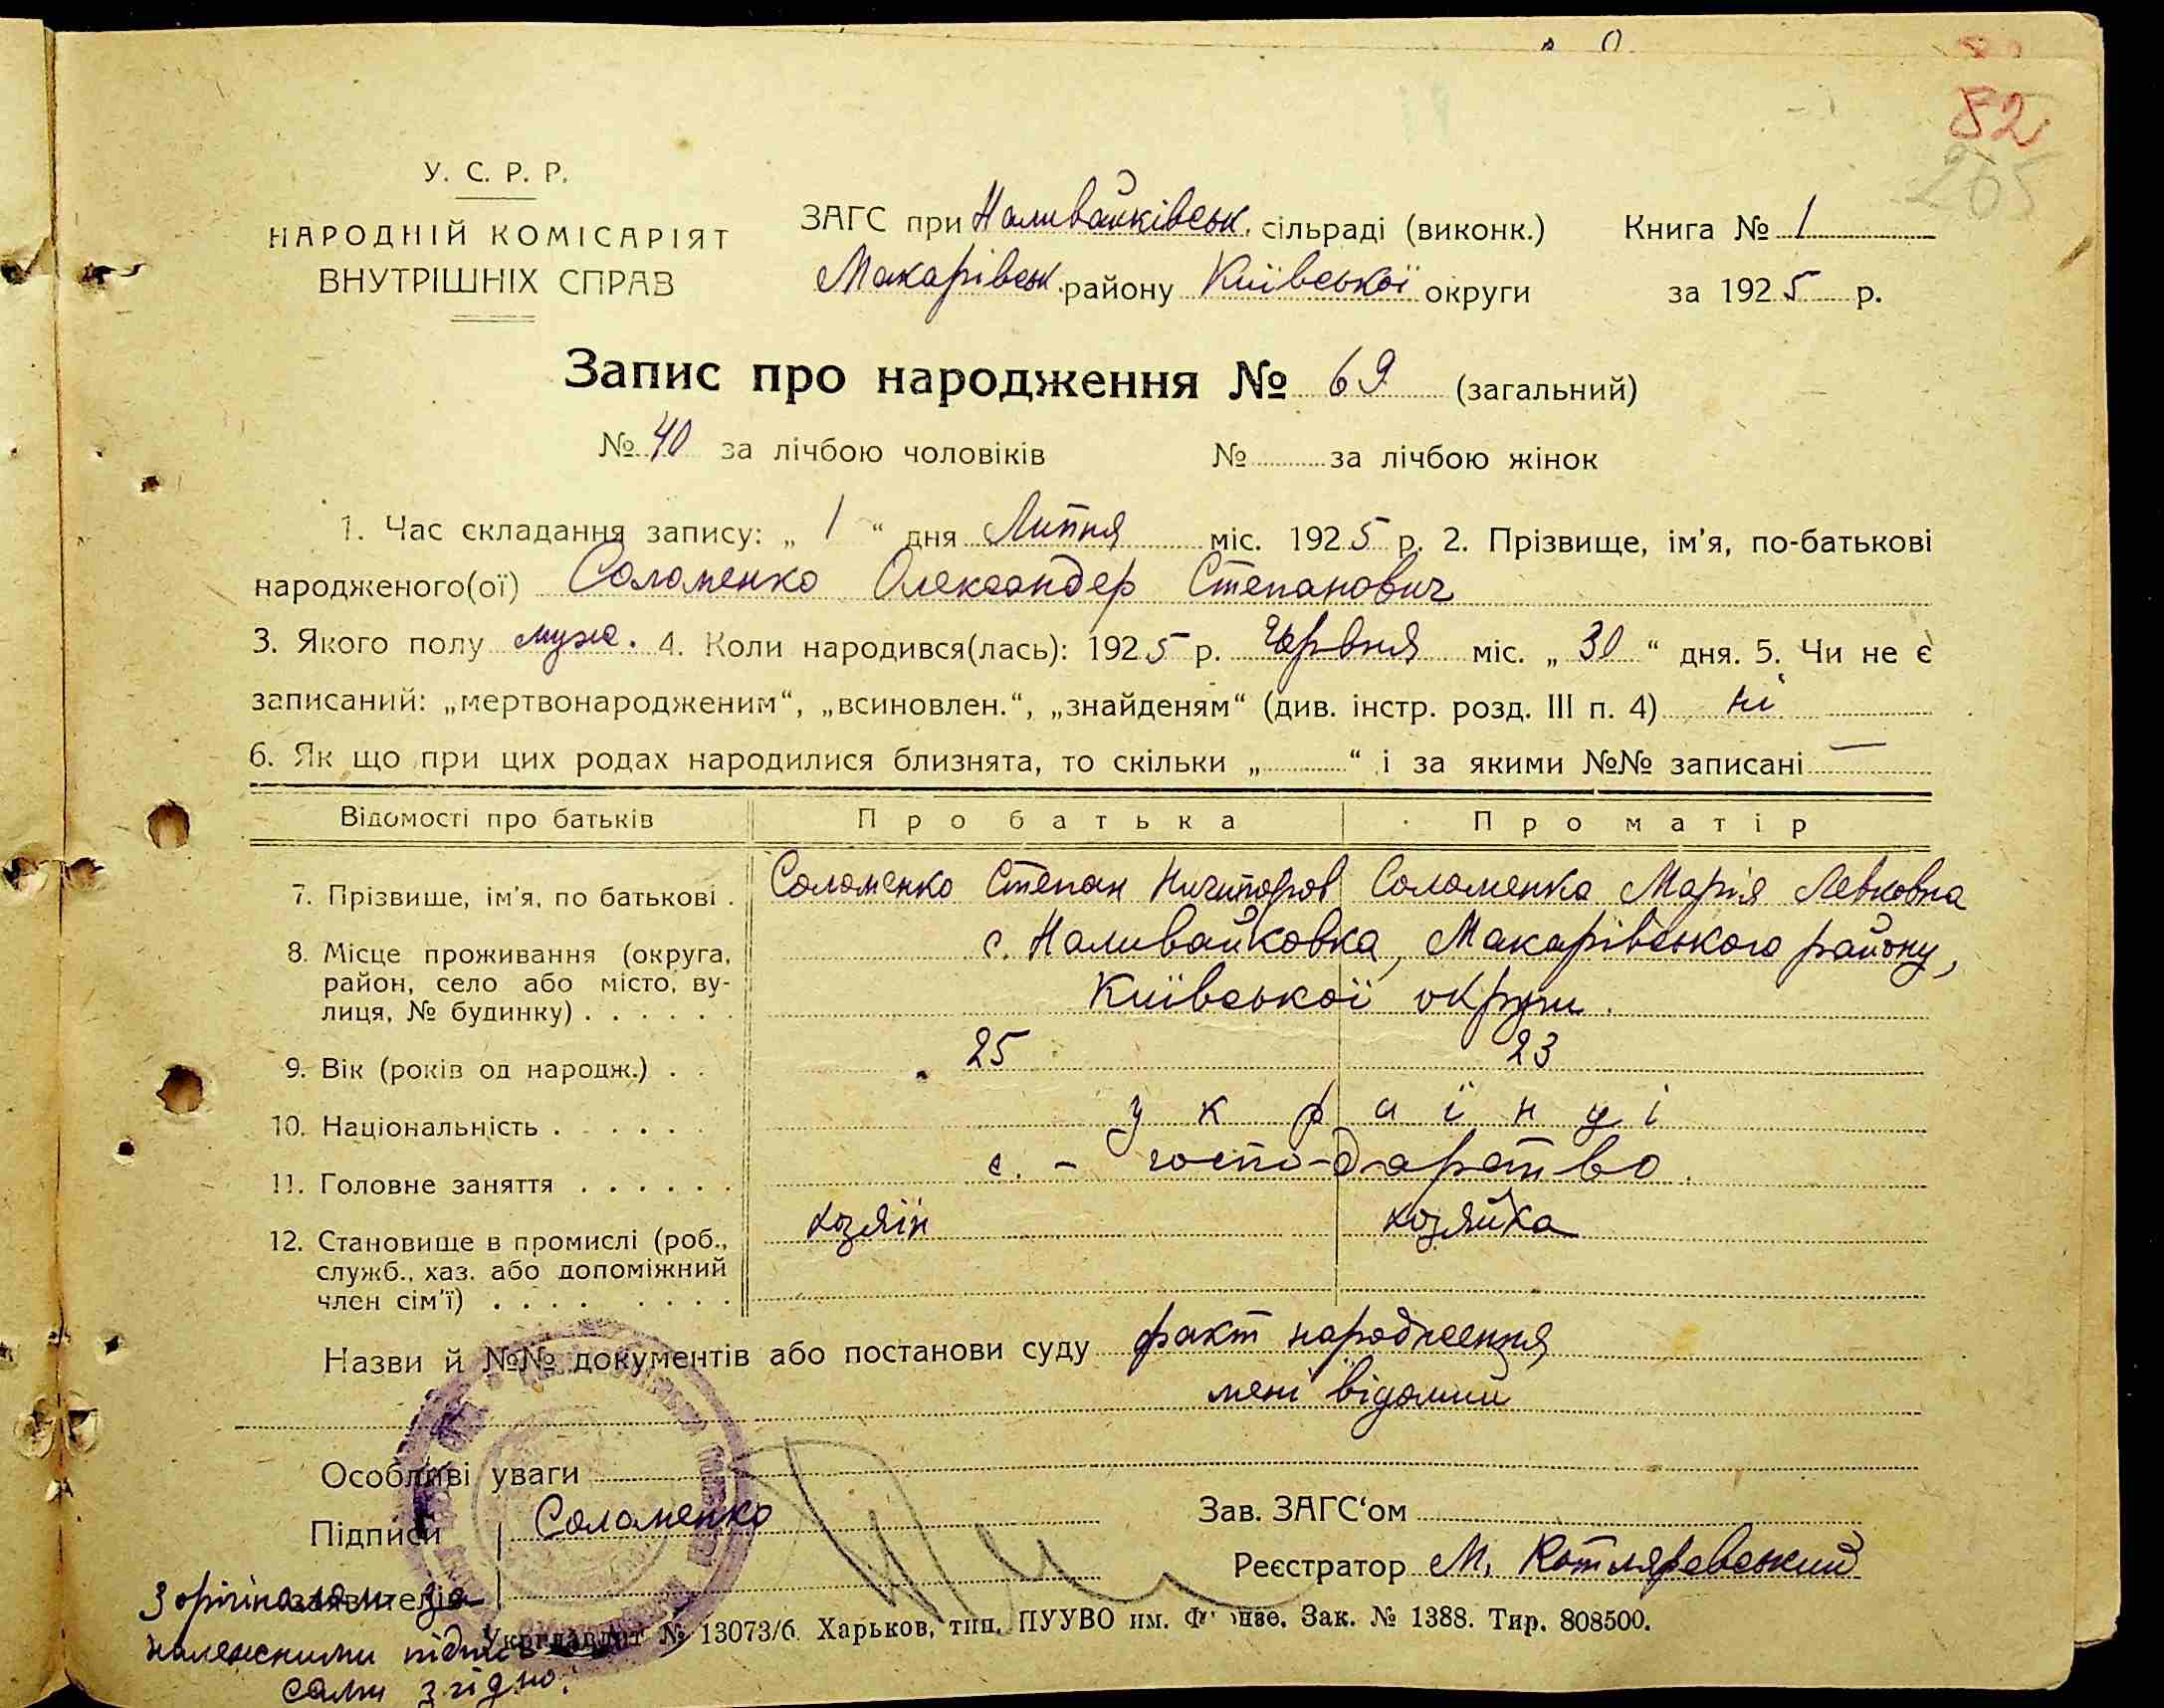 82
265
У. С. Р. Р.
НАРОДНІЙ КОМІСАРІЯТ
ВНУТРІШНІХ СПРАВ
ЗАГС при Наливайківськ. сільраді (виконк.)
Макарівськ. району Київської округи
Книга № 1
за 1925 р.
Запис про народження № 69 (загальний)
№ 40 за лічбою чоловіків № за лічбою жінок
1. Час складання запису: „ 1 “ дня Липня міс. 1925 р. 2. Прізвище, ім’я, по-батькові
народженого(ої) Соломенко Олександер Степанович
3. Якого полу муж. 4. Коли народився(лась): 1925 р. Червня міс. „ 30 “ дня. 5. Чи не є
записаний: „мертвонародженим“, „всиновлен.“, „знайденям“ (див. інстр. розд. III п. 4) ні
6. Як що при цих родах народилися близнята, то скільки „ “ і за якими №№ записані —
Відомості про батьків Про батька Про матір
7. Прізвище, ім’я, по батькові . Соломенко Степан Ничипоров Соломенко Марія Левковна
8. Місце проживання (округа, с. Наливайковка, Макарівського району,
район, село або місто, ву-
лиця, № будинку) . . . . . . Київської округи.
9. Вік (років од народж.) . . 25 23
10. Національність . . . . . . українці
11. Головне заняття . . . . . . с. - господарство.
12. Становище в промислі (роб., хозяїн хозяйка
служб., хаз. або допоміжний
член сім’ї) . . . . . . . .
Назви й №№ документів або постанови суду факт народження
мені відомий
Особливі уваги
Підписи Соломенко
Зав. ЗАГС‘ом
Реєстратор М. Котляревський
заявителів
З орігіналом за
належними підпи
сами згідно:
Укрглавліт № 13073/6. Харьков, тип. ПУУВО им. Фрунзе. Зак. № 1388. Тир. 808500.